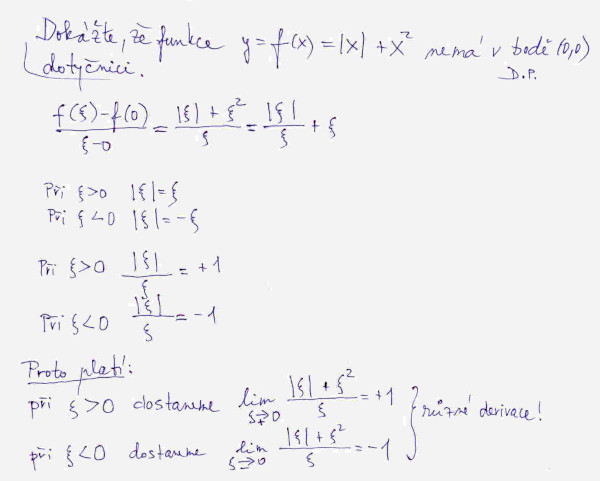 Dokážte, že funkce y = f(x) = |x| + x² nemá v bodě (0,0)
dotyčnici.
D.P.
f(ξ)-f(0)/ξ-0 = |ξ| + ξ²/ξ = |ξ|/ξ + ξ
Při ξ>0 |ξ|=ξ
Při ξ<0 |ξ|=-ξ
Při ξ>0 |ξ|/ξ = +1
Při ξ<0 |ξ|/ξ = -1
Proto platí:
při ξ>0 dostaneme lim ξ→0+ |ξ| + ξ²/ξ = +1
při ξ<0 dostaneme lim ξ→0 |ξ| + ξ²/ξ = -1
} různé derivace!